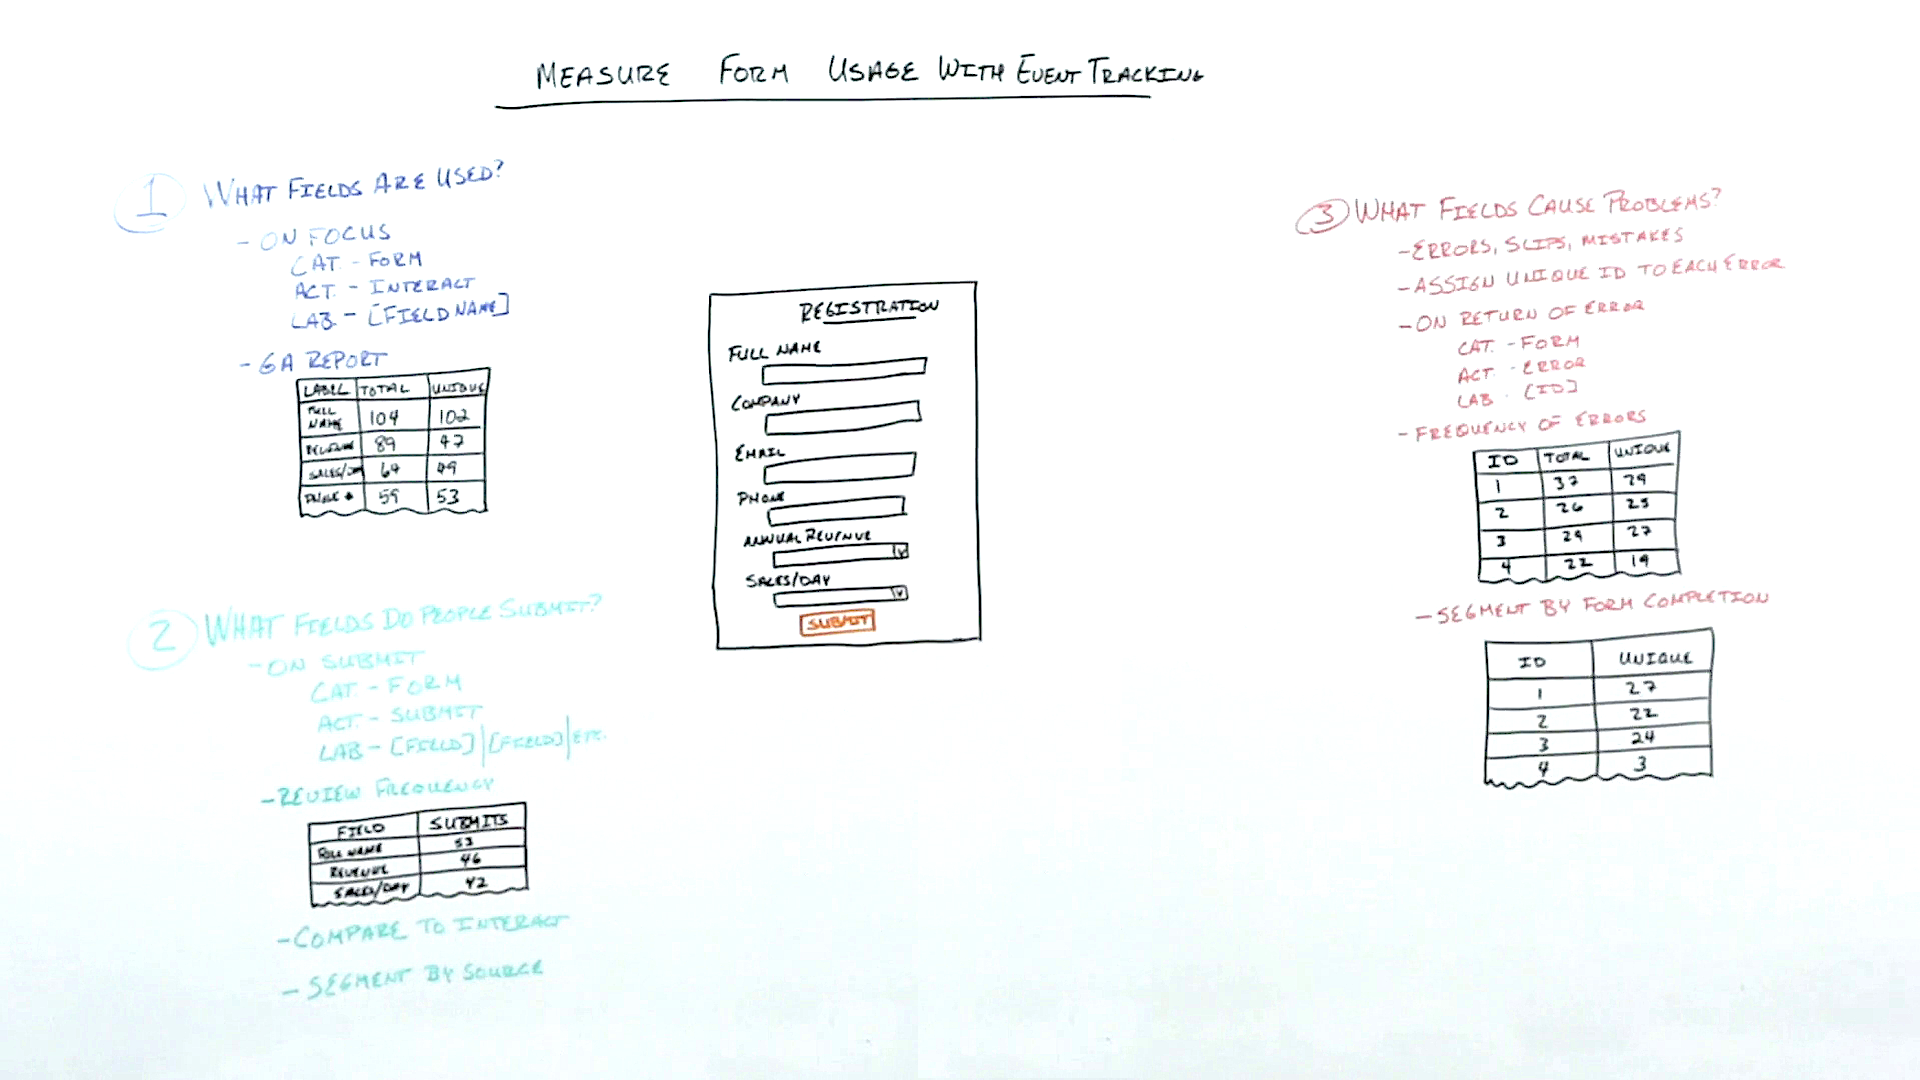 MEASURE FORM USAGE WITH EVENT TRACKING
1 WHAT FIELDS ARE USED?
- ON FOCUS
CAT - FORM
ACT. - INTERACT
LAB - [FIELD NAME]
- GA REPORT
LABEL TOTAL UNIQUE
FULL NAME 104 102
REVENUE 89 47
SALES/DAY 64 49
PHONE # 59 53
2 WHAT FIELDS DO PEOPLE SUBMIT?
- ON SUBMIT
CAT. - FORM
ACT. - SUBMIT
LAB - [FIELD]|[FIELD]|ETC.
- REVIEW FREQUENCY
FIELD SUBMITS
FULL NAME 53
REVENUE 46
SALES/DAY 42
- COMPARE TO INTERACT
- SEGMENT BY SOURCE
REGISTRATION
FULL NAME
COMPANY
EMAIL
PHONE
ANNUAL REVENUE
SALES/DAY
SUBMIT
3 WHAT FIELDS CAUSE PROBLEMS?
- ERRORS, SLIPS, MISTAKES
- ASSIGN UNIQUE ID TO EACH ERROR
- ON RETURN OF ERROR
CAT. - FORM
ACT. - ERROR
LAB - [ID]
- FREQUENCY OF ERRORS
ID TOTAL UNIQUE
1 37 29
2 26 25
3 29 27
4 22 19
- SEGMENT BY FORM COMPLETION
ID UNIQUE
1 27
2 22
3 24
4 3